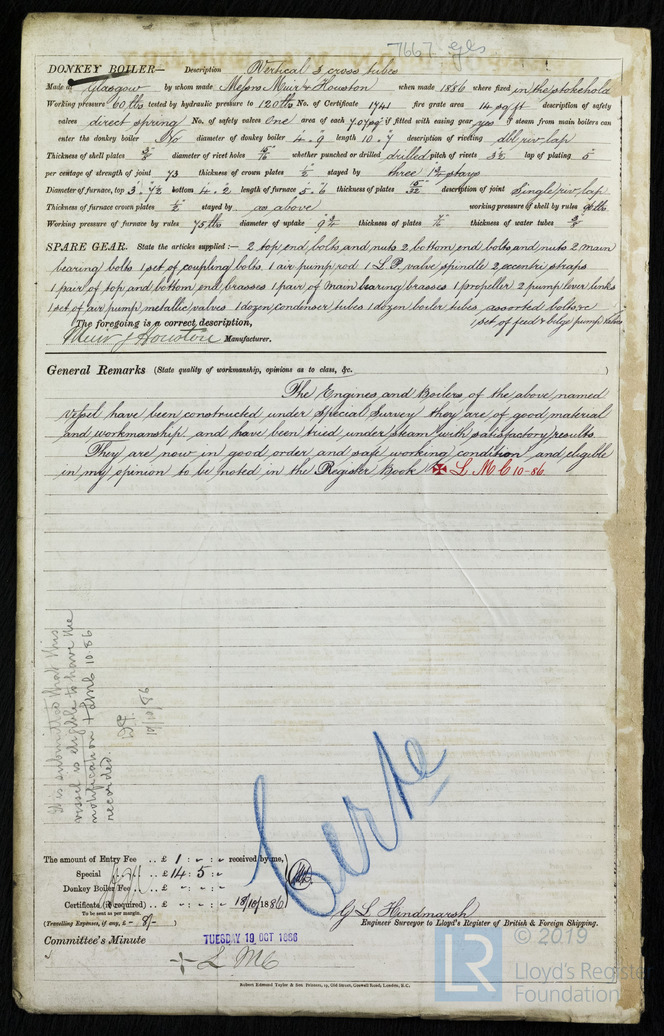 7667 gls
DONKEY BOILER— Description Vertical 3 cross tubes
Made at Glasgow by whom made Messrs Muir & Houston when made 1886 where fixed in the stokehold
Working pressure 60 lbs tested by hydraulic pressure to 120 lbs No. of Certificate 1741 fire grate area 14 sq ft description of safety
valves direct spring No. of safety valves One area of each 7.07 sq" if fitted with easing gear yes if steam from main boilers can
enter the donkey boiler No diameter of donkey boiler 4'.9" length 10'.7" description of riveting dbl riv. lap
Thickness of shell plates diameter of rivet holes whether punched or drilled drilled pitch of rivets lap of plating 5"
per centage of strength of joint 73 thickness of crown plates 1/2" stayed by three 1 3/4" stays
Diameter of furnace, top 3'.7 1/2" bottom 4'.2" length of furnace 5'.6" thickness of plates 15/32" description of joint Single riv. lap
Thickness of furnace crown plates 1/2" stayed by as above working pressure of shell by rules
Working pressure of furnace by rules 75 lbs diameter of uptake 9 3/4" thickness of plates thickness of water tubes
SPARE GEAR. State the articles supplied:— 2 top end bolts and nuts 2 bottom end bolts and nuts 2 main
bearing bolts 1 set of coupling bolts. 1 air pump rod 1 L.P. valve spindle 2 eccentric straps
1 pair of top and bottom end brasses 1 pair of main bearing brasses 1 propeller 2 pump lever links
1 set of air pump metallic valves 1 dozen condenser tubes 1 dozen boiler tubes, assorted bolts &c
The foregoing is a correct description, 1 set of feed & bilge pump valves
Muir & Houston Manufacturer.
General Remarks (State quality of workmanship, opinions as to class, &c. )
The Engines and Boilers of the above named
vessel have been constructed under Special Survey they are of good material
and workmanship and have been tried under steam with satisfactory results.
They are now in good order and safe working condition and eligible
in my opinion to be noted in the Register Book ✠ L M C 10-86
It is submitted that this
vessel is eligible to have the
notification + LMC 10.86
recorded.
19/10/86
Certe
The amount of Entry Fee .. £ 1 : - : - received by me,
Special .. £ 14 : 5 : -
Donkey Boiler Fee .. £ - : - : -
Certificate (if required) .. £ - : - : - 18/10/1886
To be sent as per margin.
(Travelling Expenses, if any, £ - 8/- )
G L Hindmarsh
Engineer Surveyor to Lloyd's Register of British & Foreign Shipping.
Committee's Minute TUESDAY 19 OCT 1886
+ L M C
Robert Edmund Taylor & Son Printers, 19, Old Street, Goswell Road, London, E.C.
© 2019
LR
Lloyd's Register
Foundation